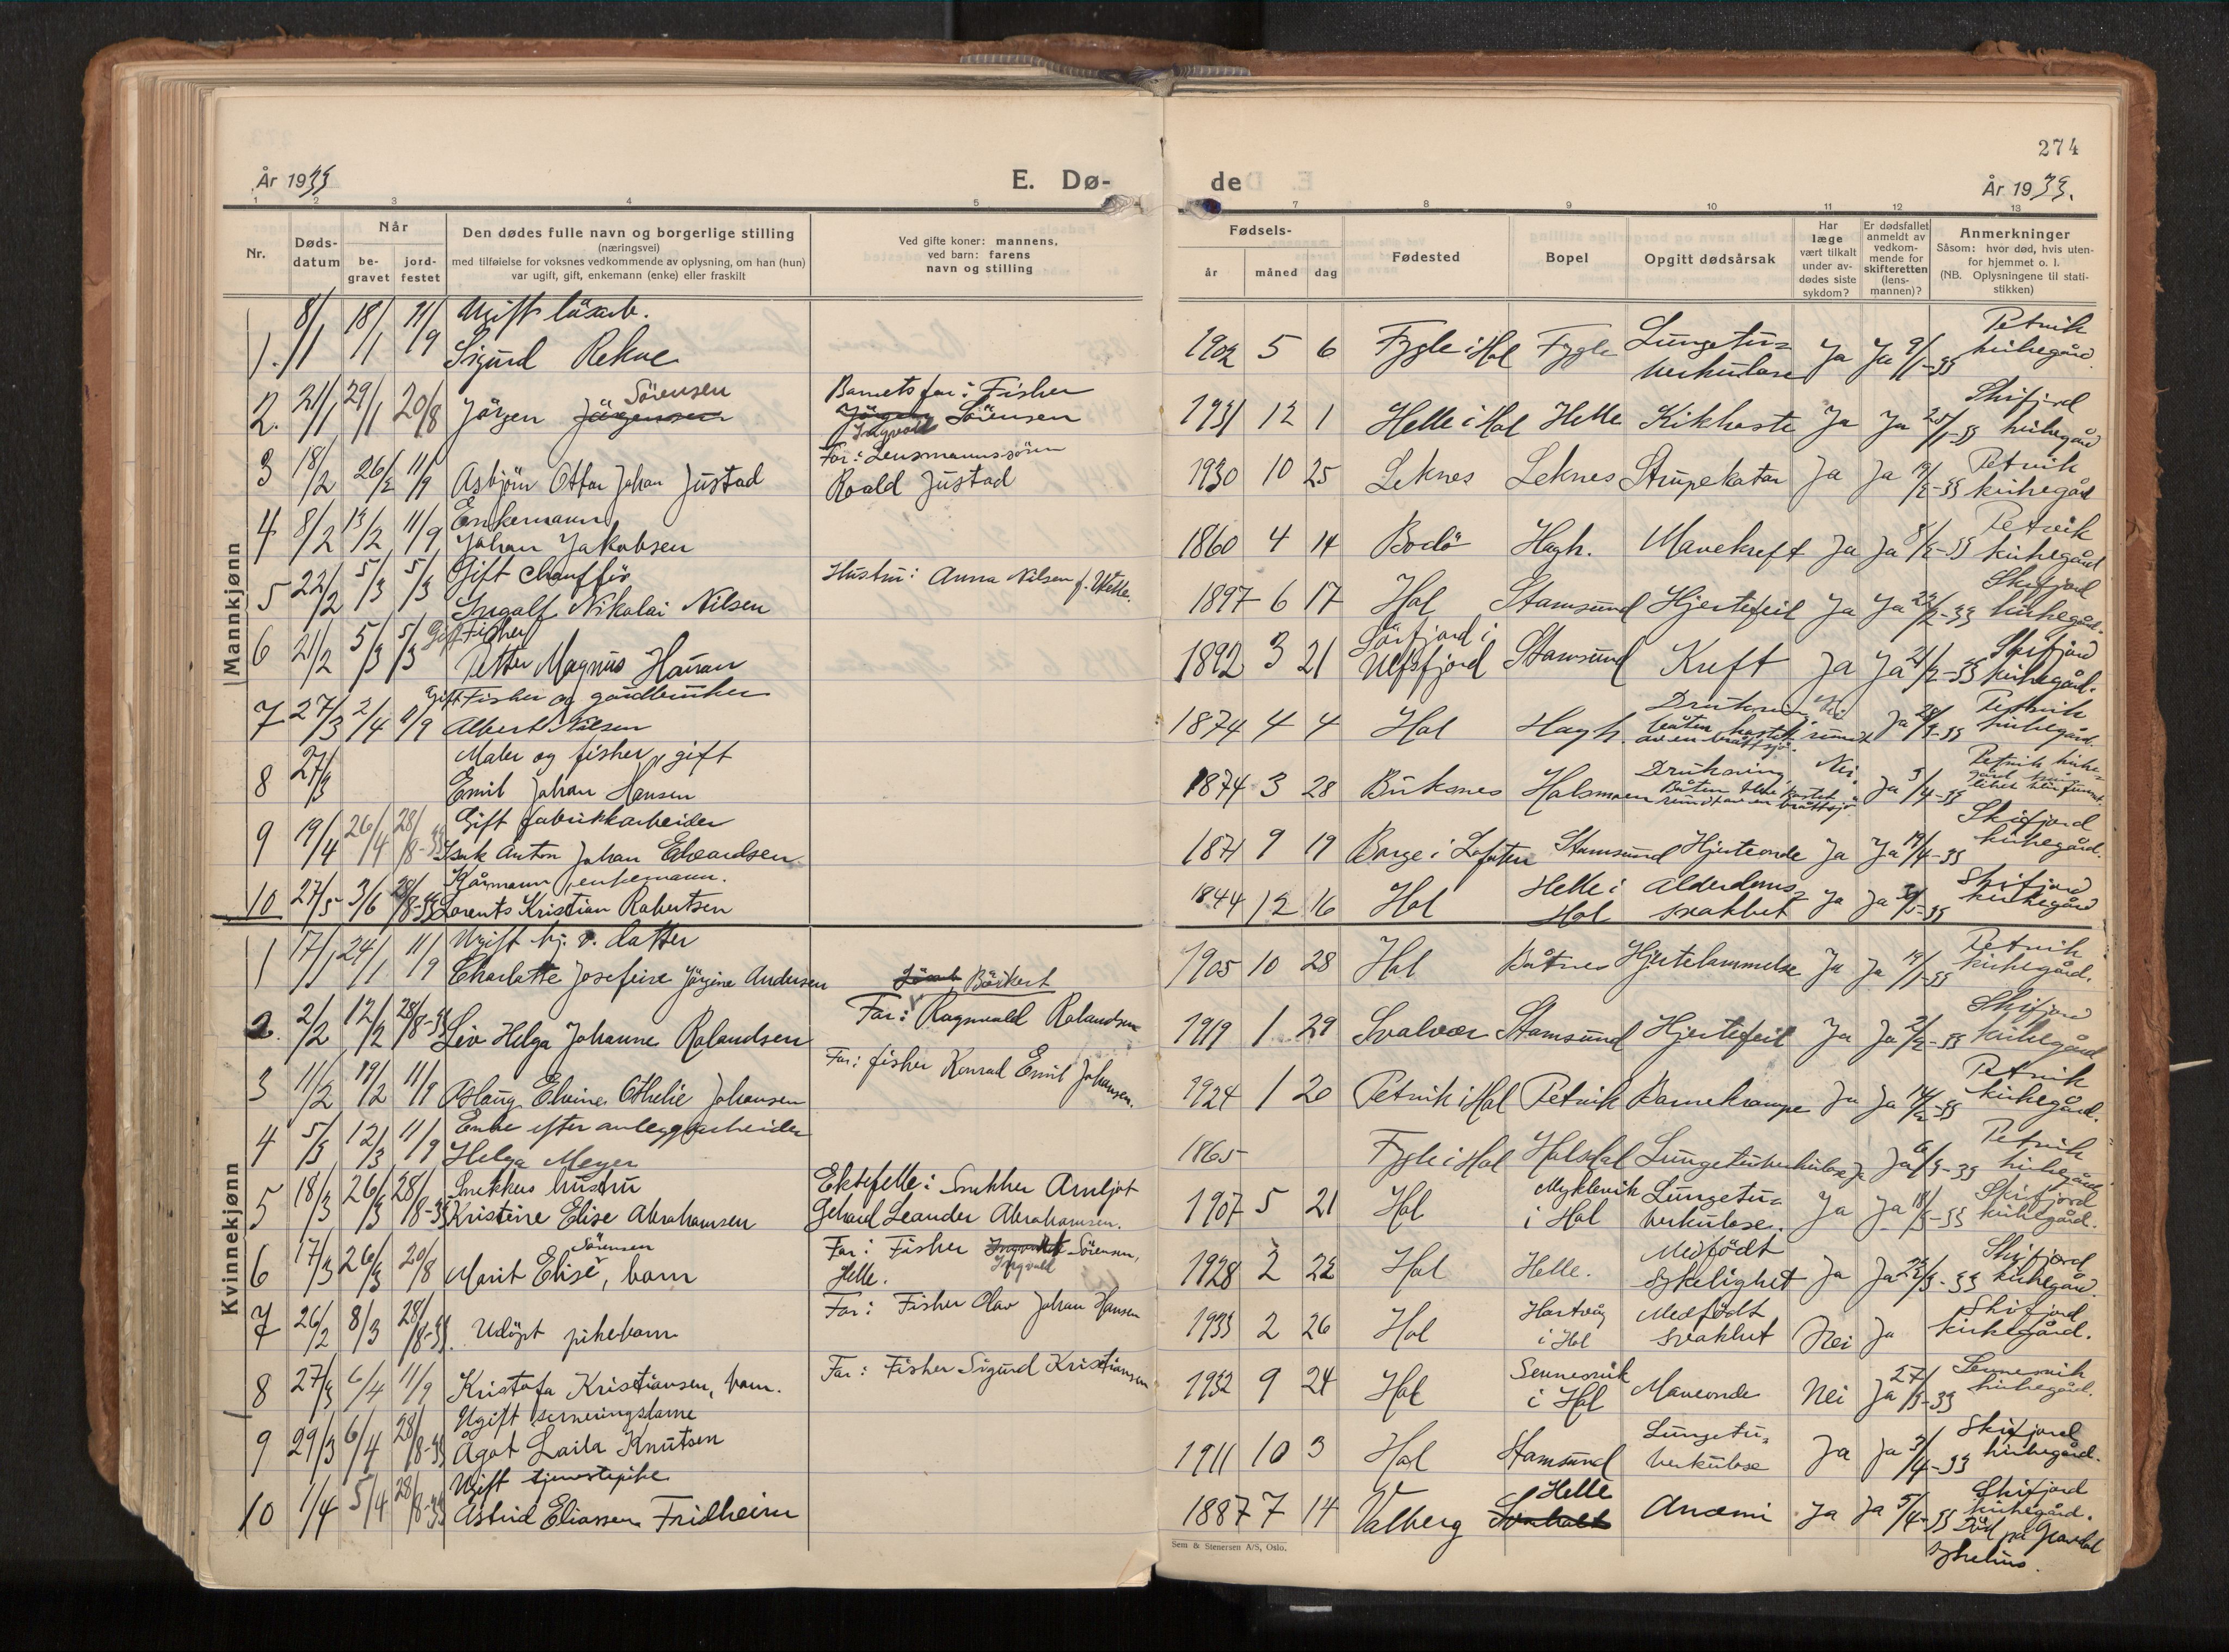 274
År 1933
E. Dø-
de
År 1933.
1 2 3 4 5 7 8 9 10 11 12 13
Nr.
Døds-
datum
Når
be-
gravet
jord-
festet
Den dødes fulle navn og borgerlige stilling
(næringsvei)
med tilføielse for voksnes vedkommende av oplysning, om han (hun)
var ugift, gift, enkemann (enke) eller fraskilt
Ved gifte koner: mannens,
ved barn: farens
navn og stilling
Fødsels-
år måned dag
Fødested
Bopel
Opgitt dødsårsak
Har
læge
vært tilkalt
under av-
dødes siste
sykdom?
Er dødsfallet
anmeldt av
vedkom-
mende for
skifteretten
(lens-
mannen)?
Anmerkninger
Såsom: hvor død, hvis uten-
for hjemmet o. l.
(NB. Oplysningene til stati-
stikken)
Mannkjønn
1. 8/1 18/1 11/9 Ugift løsarb.
Sigurd Rekve
1902 5 6 Fygle i Hol Fygle Lungetu-
berkulose Ja Ja 9/1-33 Petvik
kirkegård
2. 21/1 29/1 20/8 Jørgen Jørgensen Sørensen
Barnets far: Fisker
Jørgen Sørensen
Ingvald
1931 12 1 Helle i Hol Helle Kikhoste Ja Ja 25/1-33 Skifjord
kirkegård
3 18/2 26/2 11/9 Asbjørn Ottar Johan Justad
Far: Lensmannssønn
Roald Justad
1930 10 25 Leknes Leknes Strupekatar Ja Ja /2-33 Petvik
kirkegård
4 8/2 13/2 11/9 Enkemann
Johan Jakobsen
1860 4 14 Bodø Hagh. Mavekreft Ja Ja 8/2-33 Petvik
kirkegård
5 22/2 5/3 5/3 Gift chauffør
Ingolf Nikolai Nilsen
Hustru: Anna Nilsen f.
1897 6 17 Hol Stamsund Hjertefeil Ja Ja 22/2-33 Skifjord
kirkegård.
6 21/2 5/3 5/3 Gift Fisker
Petter Magnus Hauan
1892 3 21 Sørfjord i
Ulfsfjord Stamsund Kreft Ja Ja 21/2-33 Skifjord
kirkegård.
7 27/3 2/4 11/9 Gift Fisker og gårdbruker
Albert Nilsen
1874 4 4 Hol Hagh. Drukning,
båten kastet rundt
av en bråttsjø. Nei Ja 28/3-33 Petvik
kirkegård.
8 27/3 Maler og fisker, gift
Emil Johan Hansen
1874 3 28 Buksnes Holsmoen Drukning
Båten blev kastet
rundt av en bråttsjø. Nei. Ja 3/4-33 Petvik kirke-
gård
9 19/4 26/4 28/8-33 Gift fabrikkarbeider
Isak Anton Johan Edvardsen
1871 9 19 Borge i Lofoten Stamsund Hjerteonde Ja Ja 19/4-33 Skifjord
kirkegård.
10 27/5 3/6 28/8-33 Kårmann, enkemann.
Lorents Kristian Robertsen
1844 12 16 Hol Helle i
Hol Alderdoms-
svakhet Ja Ja /5-33 Skifjord
kirkegård
Kvinnekjønn
1 17/1 24/1 11/9 Ugift hj. v. datter
Charlotte Josefine Jørgine Andersen
1905 10 28 Hol Båtnes Hjertelammelse Ja Ja 19/1-33 Petvik
kirkegård.
2. 2/2 12/2 28/8-33 Liv Helga Johanne Rolandsen
Far: Ragnvald Rolandsen
1919 1 29 Svolvær Stamsund Hjertefeil Ja Ja 2/2-33 Skifjord
kirkegård
3 11/2 19/2 11/9 Aslaug Elvine Othelie Johansen
Far: fisker Konrad Emil Johansen.
1924 1 20 Petvik i Hol Petvik Barnekrampe Ja Ja 14/2-33 Petvik
kirkegård.
4 5/3 12/3 11/9 Enke efter anleggsarbeider
Helga Meyer
1865 Fygle i Hol Holsdal Lungetuberkulose Ja Ja 6/3-33 Petvik
kirkegård
5 18/3 26/3 28/8-33 Snekkers hustru
Kristine Elise Abrahamsen
Ektefelle: Snekker Arnljot
Gehard Leander Abrahamsen.
1907 5 21 Hol Myklevik
i Hol Lungetu-
berkulose. Ja Ja 18/3-33 Skifjord
kirkegård.
6 17/3 26/3 20/8 Marit Elise Sørensen, barn
Far: Fisker Sørensen,
Ingvald
Helle.
1928 2 22 Hol Helle. Medfødt
sykelighet Ja Ja 22/3-33 Skifjord
kirkegård.
7 26/2 8/3 28/8-33. Udøpt pikebarn
Far: Fisker Olav Johan Hansen
1933 2 26 Hol Hartvåg
i Hol Medfødt
svakhet Nei Ja Skifjord
kirkegård.
8 27/3 6/4 11/9 Kristofa Kristiansen, barn.
Far: Fisker Sigurd Kristiansen
1932 9 24 Hol Sennesvik
i Hol Maveonde Nei Ja 27/3-33 Sennesvik
kirkegård.
9 29/3 6/4 28/8-33 Ugift serveringsdame
Ågot Laila Knutsen
1911 10 3 Hol Stamsund Lungetu-
berkulose Ja Ja 3/4-33 Skifjord
kirkegård.
10 1/4 5/4 28/8-33 Ugift tjenestepike
Astrid Eliassen Fridheim
1887 7 14 Valberg Helle Anæmi Ja Ja 5/4-33 Skifjord
kirkegård.
Død på Gravdal
sykehus.
Sem & Stenersen A/S, Oslo.